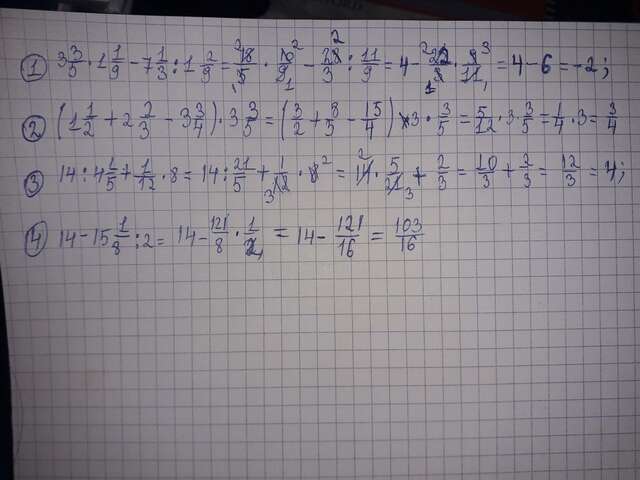 ① 3 3/5 · 1 1/9 - 7 1/3 : 1 2/9 = 18/5 · 10/9 - 22/3 : 11/9 = 4 - 22/3 · 9/11 = 4 - 6 = -2;
② (1 1/2 + 2 2/3 - 3 3/4) · 3 3/5 = (3/2 + 8/3 - 15/4) · 3 · 3/5 = 5/12 · 3 · 3/5 = 1/4 · 3 = 3/4
③ 14 : 4 1/5 + 1/12 · 8 = 14 : 21/5 + 1/12 · 8 = 14 · 5/21 + 2/3 = 10/3 + 2/3 = 12/3 = 4;
④ 14 - 15 1/8 : 2 = 14 - 121/8 · 1/2 = 14 - 121/16 = 103/16